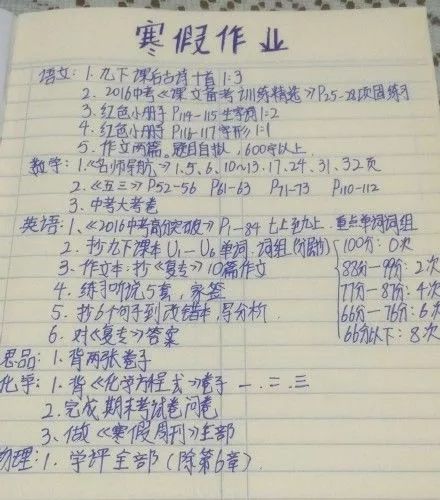 寒假作业
语文: 1. 九下课后古诗十首 1:3
2. 2016中考《课文备考训练精选》P25-28巩固练习
3. 红色小册子 P114-115 生字词1:2
4. 红色小册子 P116-117 字形1:1
5. 作文两篇。题目自拟, 600字以上.
数学: 1.《名师导航》1.5.6.10~13.17.24.31.32页
2.《五三》P52-56 P61-63 P71-73 P110-112
3. 中考大考卷
英语: 1.《2016中考高分突破》P1-84 七上至九上. 重点单词词组
2. 抄九下课本 U1-U6 单词. 词组 100分: 0次
3. 作文本: 抄《复专》10篇作文 83分-99分: 2次
4. 练习听说5套, 家签 77分-87分: 4次
5. 抄6个句子到改错本, 导分析. 66分-76分: 6次
6. 对《复专》答案 66分以下: 8次
思品: 1. 背两张卷子
化学: 1. 背《化学方程式》卷子 一.二.三
2. 完成期末考试卷问卷
3. 做《寒假周刊》全部
物理: 1. 学评全部(除第6章)